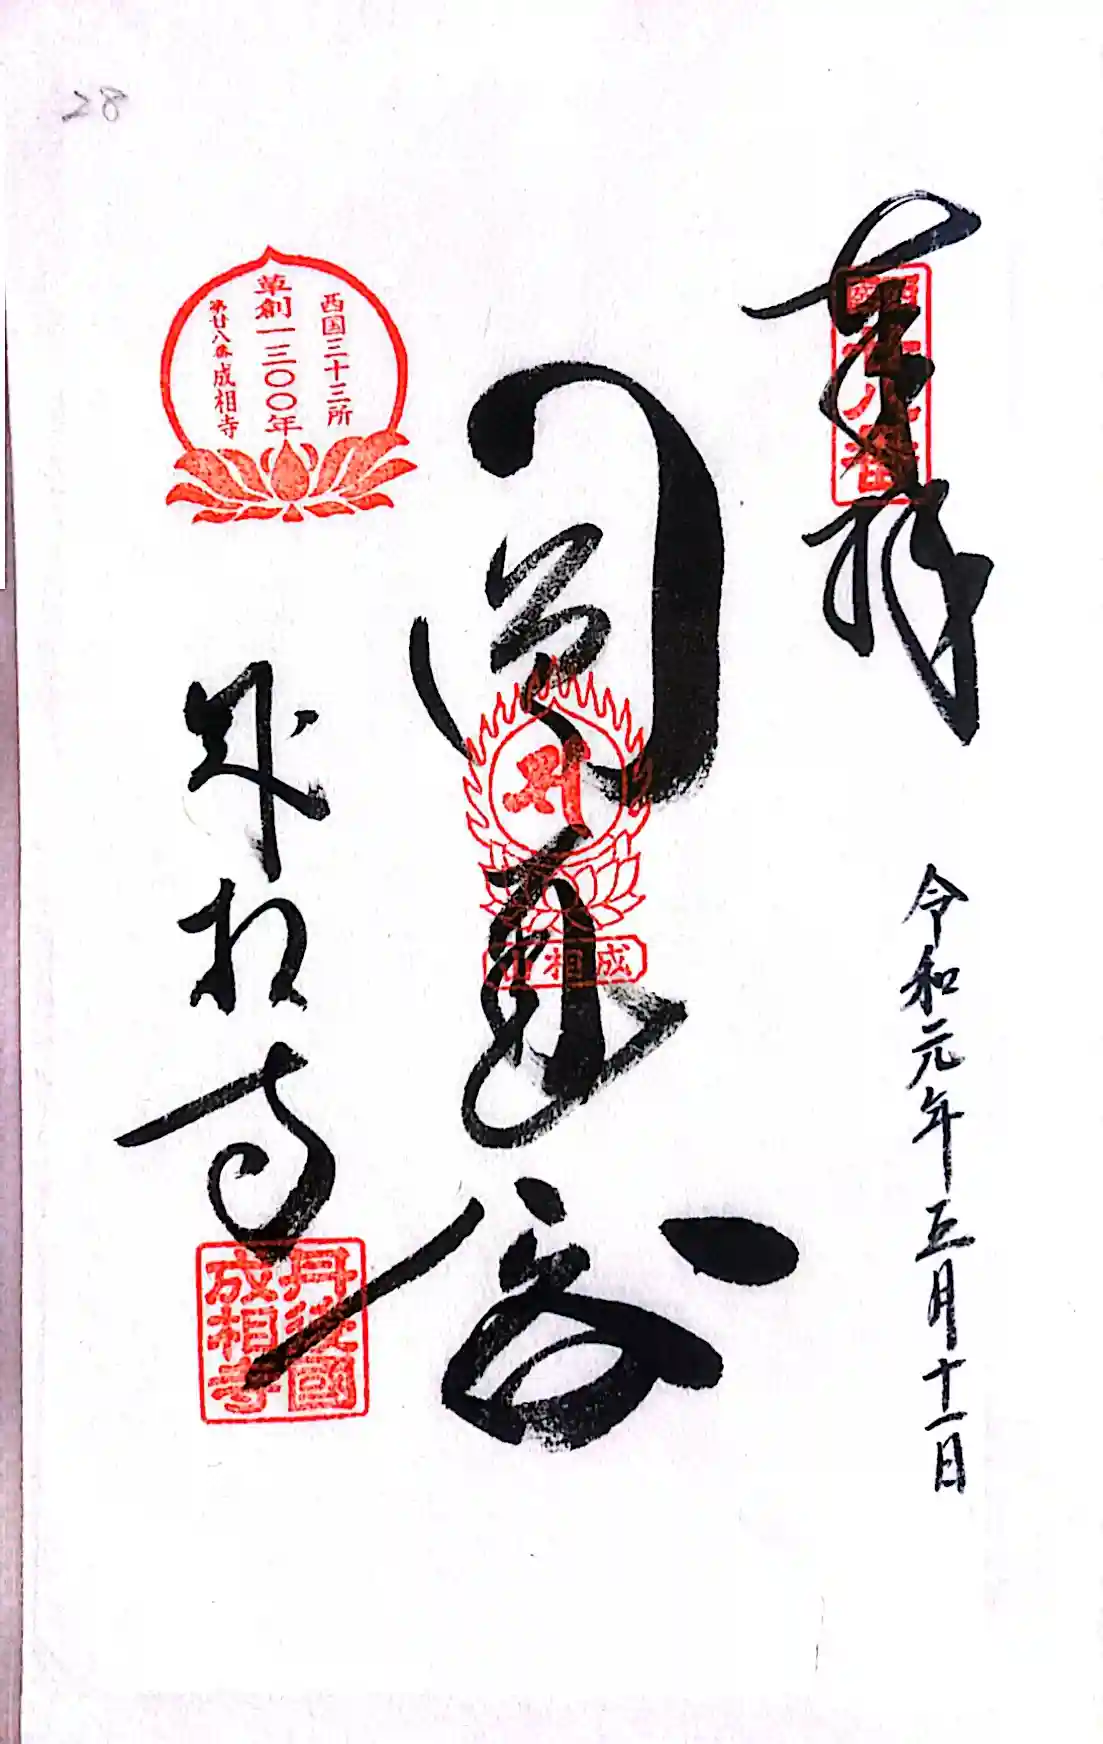 28
奉拝
西国廿八番
令和元年五月十一日
圓通閣
成相山
西国三十三所
草創一三〇〇年
第廿八番成相寺
成相寺
丹後國
成相寺